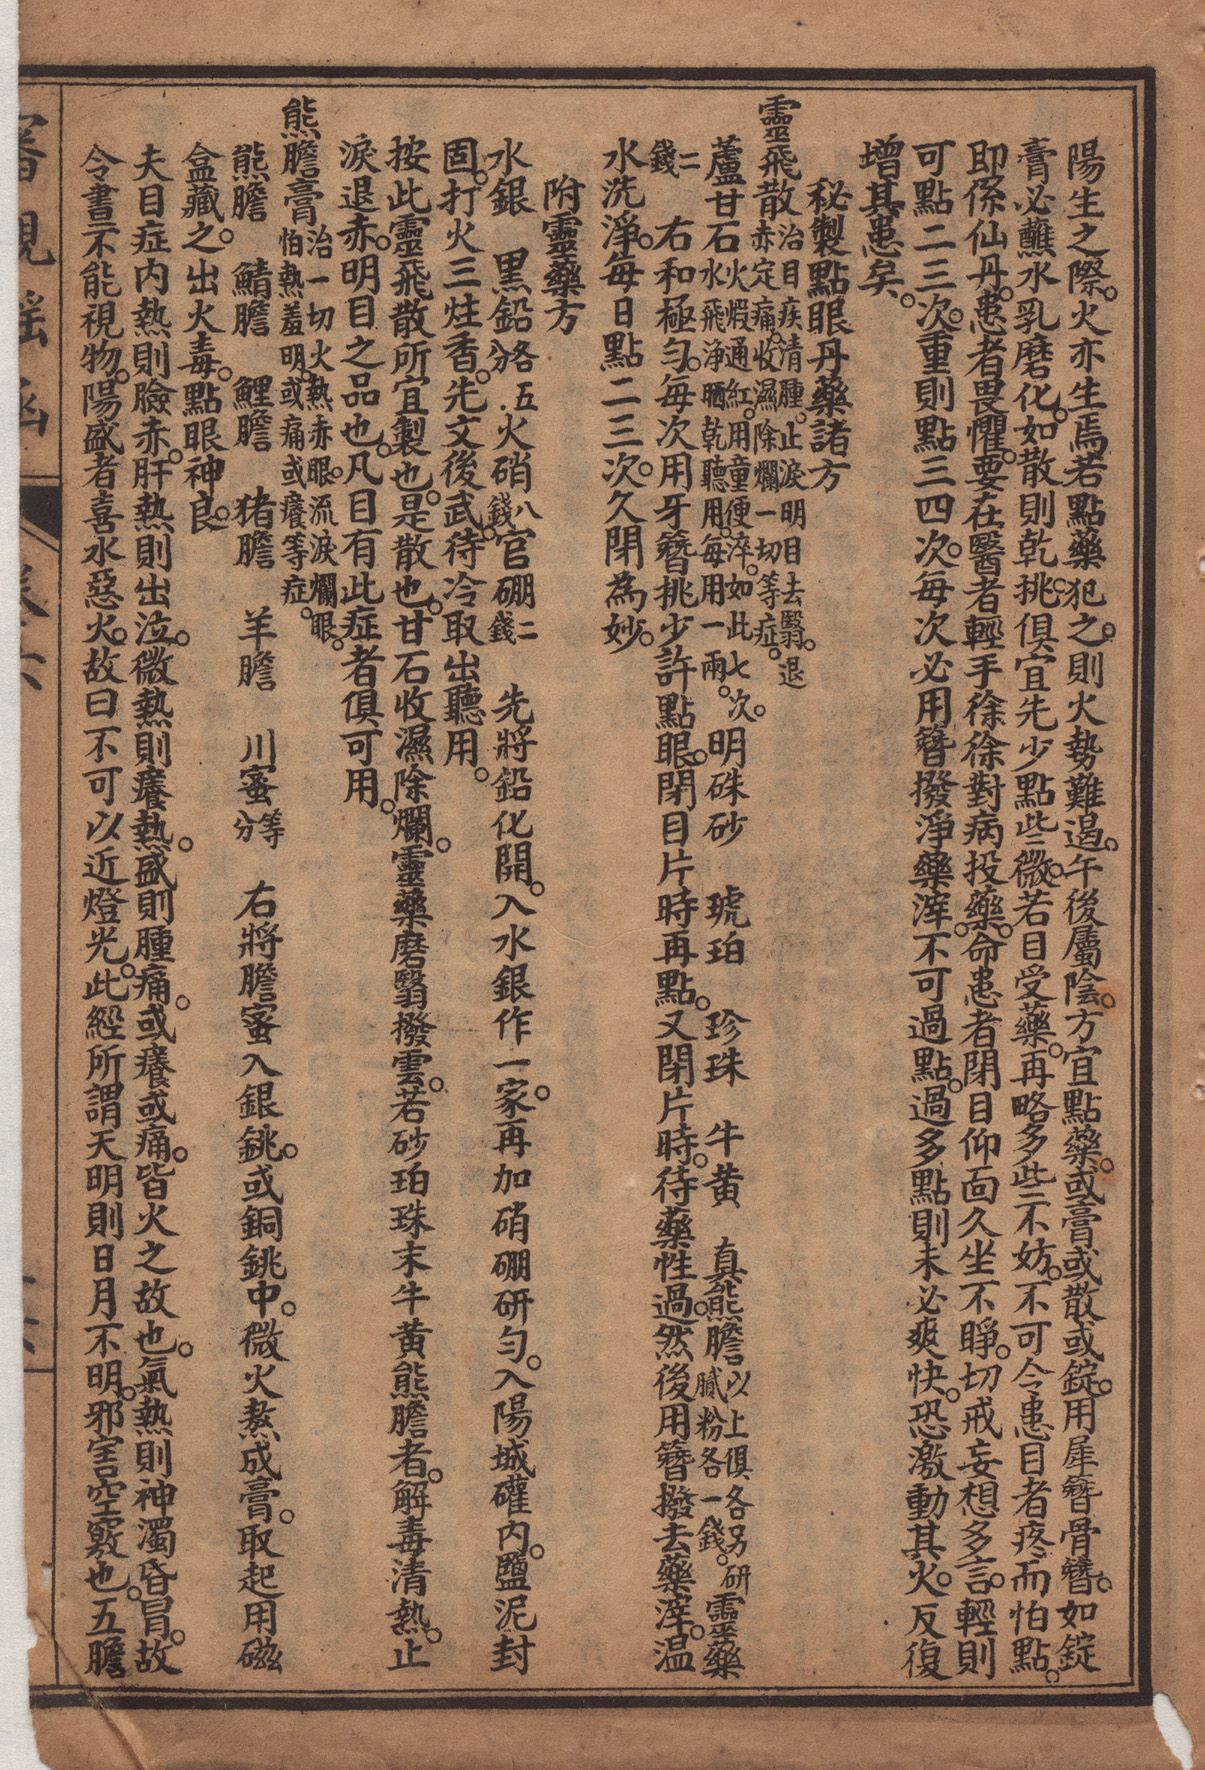 陽生之際。火亦生焉若點藥犯之。則火勢難遏。午後屬陰。方宜點藥。或膏或散或錠。用犀簪骨簪。如錠
膏必蘸水乳磨化。如散則乾挑。俱宜先少點些微。若目受藥。再略多些二不妨。不可令患目者疼而怕點。
即係仙丹。患者畏懼。要在醫者輕手徐徐對病投藥。命患者閉目仰面久坐不睜。切戒妄想多言。輕則
可點二三次。重則點三四次。每次必用簪撥淨藥滓不可過點。過多點則未必爽快。恐激動其火。反復
增其患矣。
秘製點眼丹藥諸方
靈飛散治目疾清腫。止淚明目去翳。退
赤定痛。收濕除爛一切等症。
蘆甘石火煅通紅。用童便淬。如此七次。
水飛淨晒乾聽用。每用一兩。明硃砂 琥珀 珍珠 牛黃 真熊膽以上俱各另研
膩粉各一錢。靈藥
二錢 右和極勻。每次用牙簪挑少許點眼。閉目片時再點。又閉片時。待藥性過。然後用簪撥去藥滓。溫
水洗淨。每日點二三次。久閉為妙。
附靈藥方
水銀 黑鉛各五分 火硝八錢。官硼二錢 先將鉛化開。入水銀作一家。再加硝硼研勻。入陽城礶內。鹽泥封
固。打火三炷香。先文後武。待冷取出聽用。
按此靈飛散所宜製也。是散也。甘石收濕除爛。靈藥磨翳撥雲。若砂珀珠末牛黃熊膽者。解毒清熱。止
淚退赤。明目之品也。凡目有此症者俱可用。
熊膽膏治一切火熱赤眼。流淚爛眼。
怕熱羞明。或痛或癢等症。
熊膽 鯖膽 鯉膽 猪膽 羊膽 川蜜等分 右將膽蜜入銀銚。或銅銚中。微火熬成膏。取起用磁
盒藏之。出火毒。點眼神良。
夫目症內熱則臉赤。肝熱則出泣。微熱則癢。熱盛則腫痛。或癢或痛。皆火之故也。氣熱則神濁昏冒。故
令書不能視物。陽盛者喜水惡火。故曰不可以近燈光。此經所謂天明則日月不明。邪害空竅也。五膽
審視瑤函
卷六